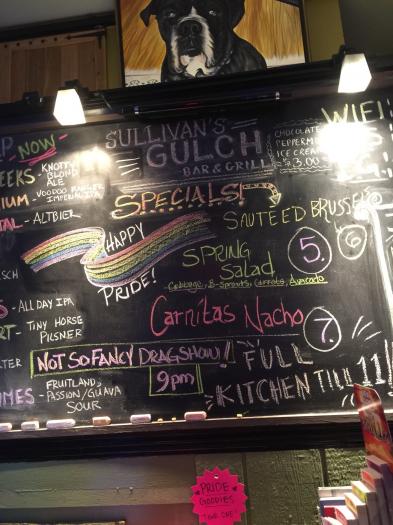 NOW
SULLIVAN'S
GULCH
BAR & GRILL
CHOCOLATE
PEPPERMINT
ICE CREAM
$3.00
WIFI
KNOTTY
BLOND
ALE
VOODOO RANGER
IMPERIAL IPA
- ALTBIER
SPECIALS!
SAUTEED BRUSSELS
6
HAPPY
PRIDE!
SPRING
Salad
5.
Cabbage, B-Sprouts, Carrots, Avocado
- ALL DAY IPA
TINY HORSE
PILSNER
Carnitas Nacho
7.
NOT SO FANCY DRAG SHOW!
9pm
FULL
KITCHEN TILL 11
FRUITLAND,
PASSION/GUAVA
SOUR
PRIDE
GOODIES
TAKE ONE